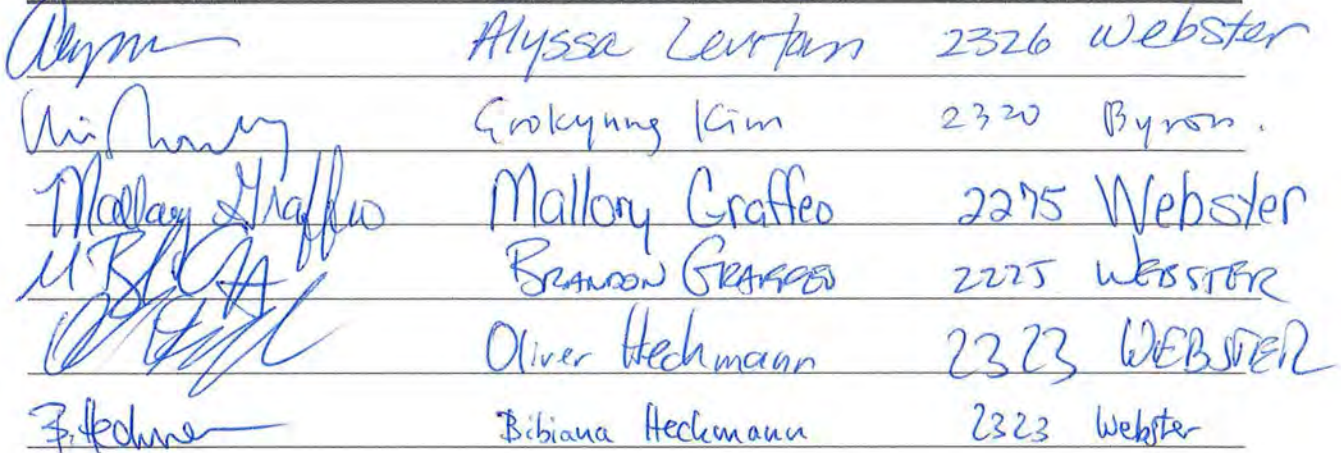 Alyssa 2326 Webster
Kim 2320 Byron.
Mallory Graffeo Mallory Graffeo 2275 Webster
BRANDON GRAFFEO 2275 WEBSTER
Oliver Heckmann 2323 WEBSTER
B. Heckmann Bibiana Heckmann 2323 Webster